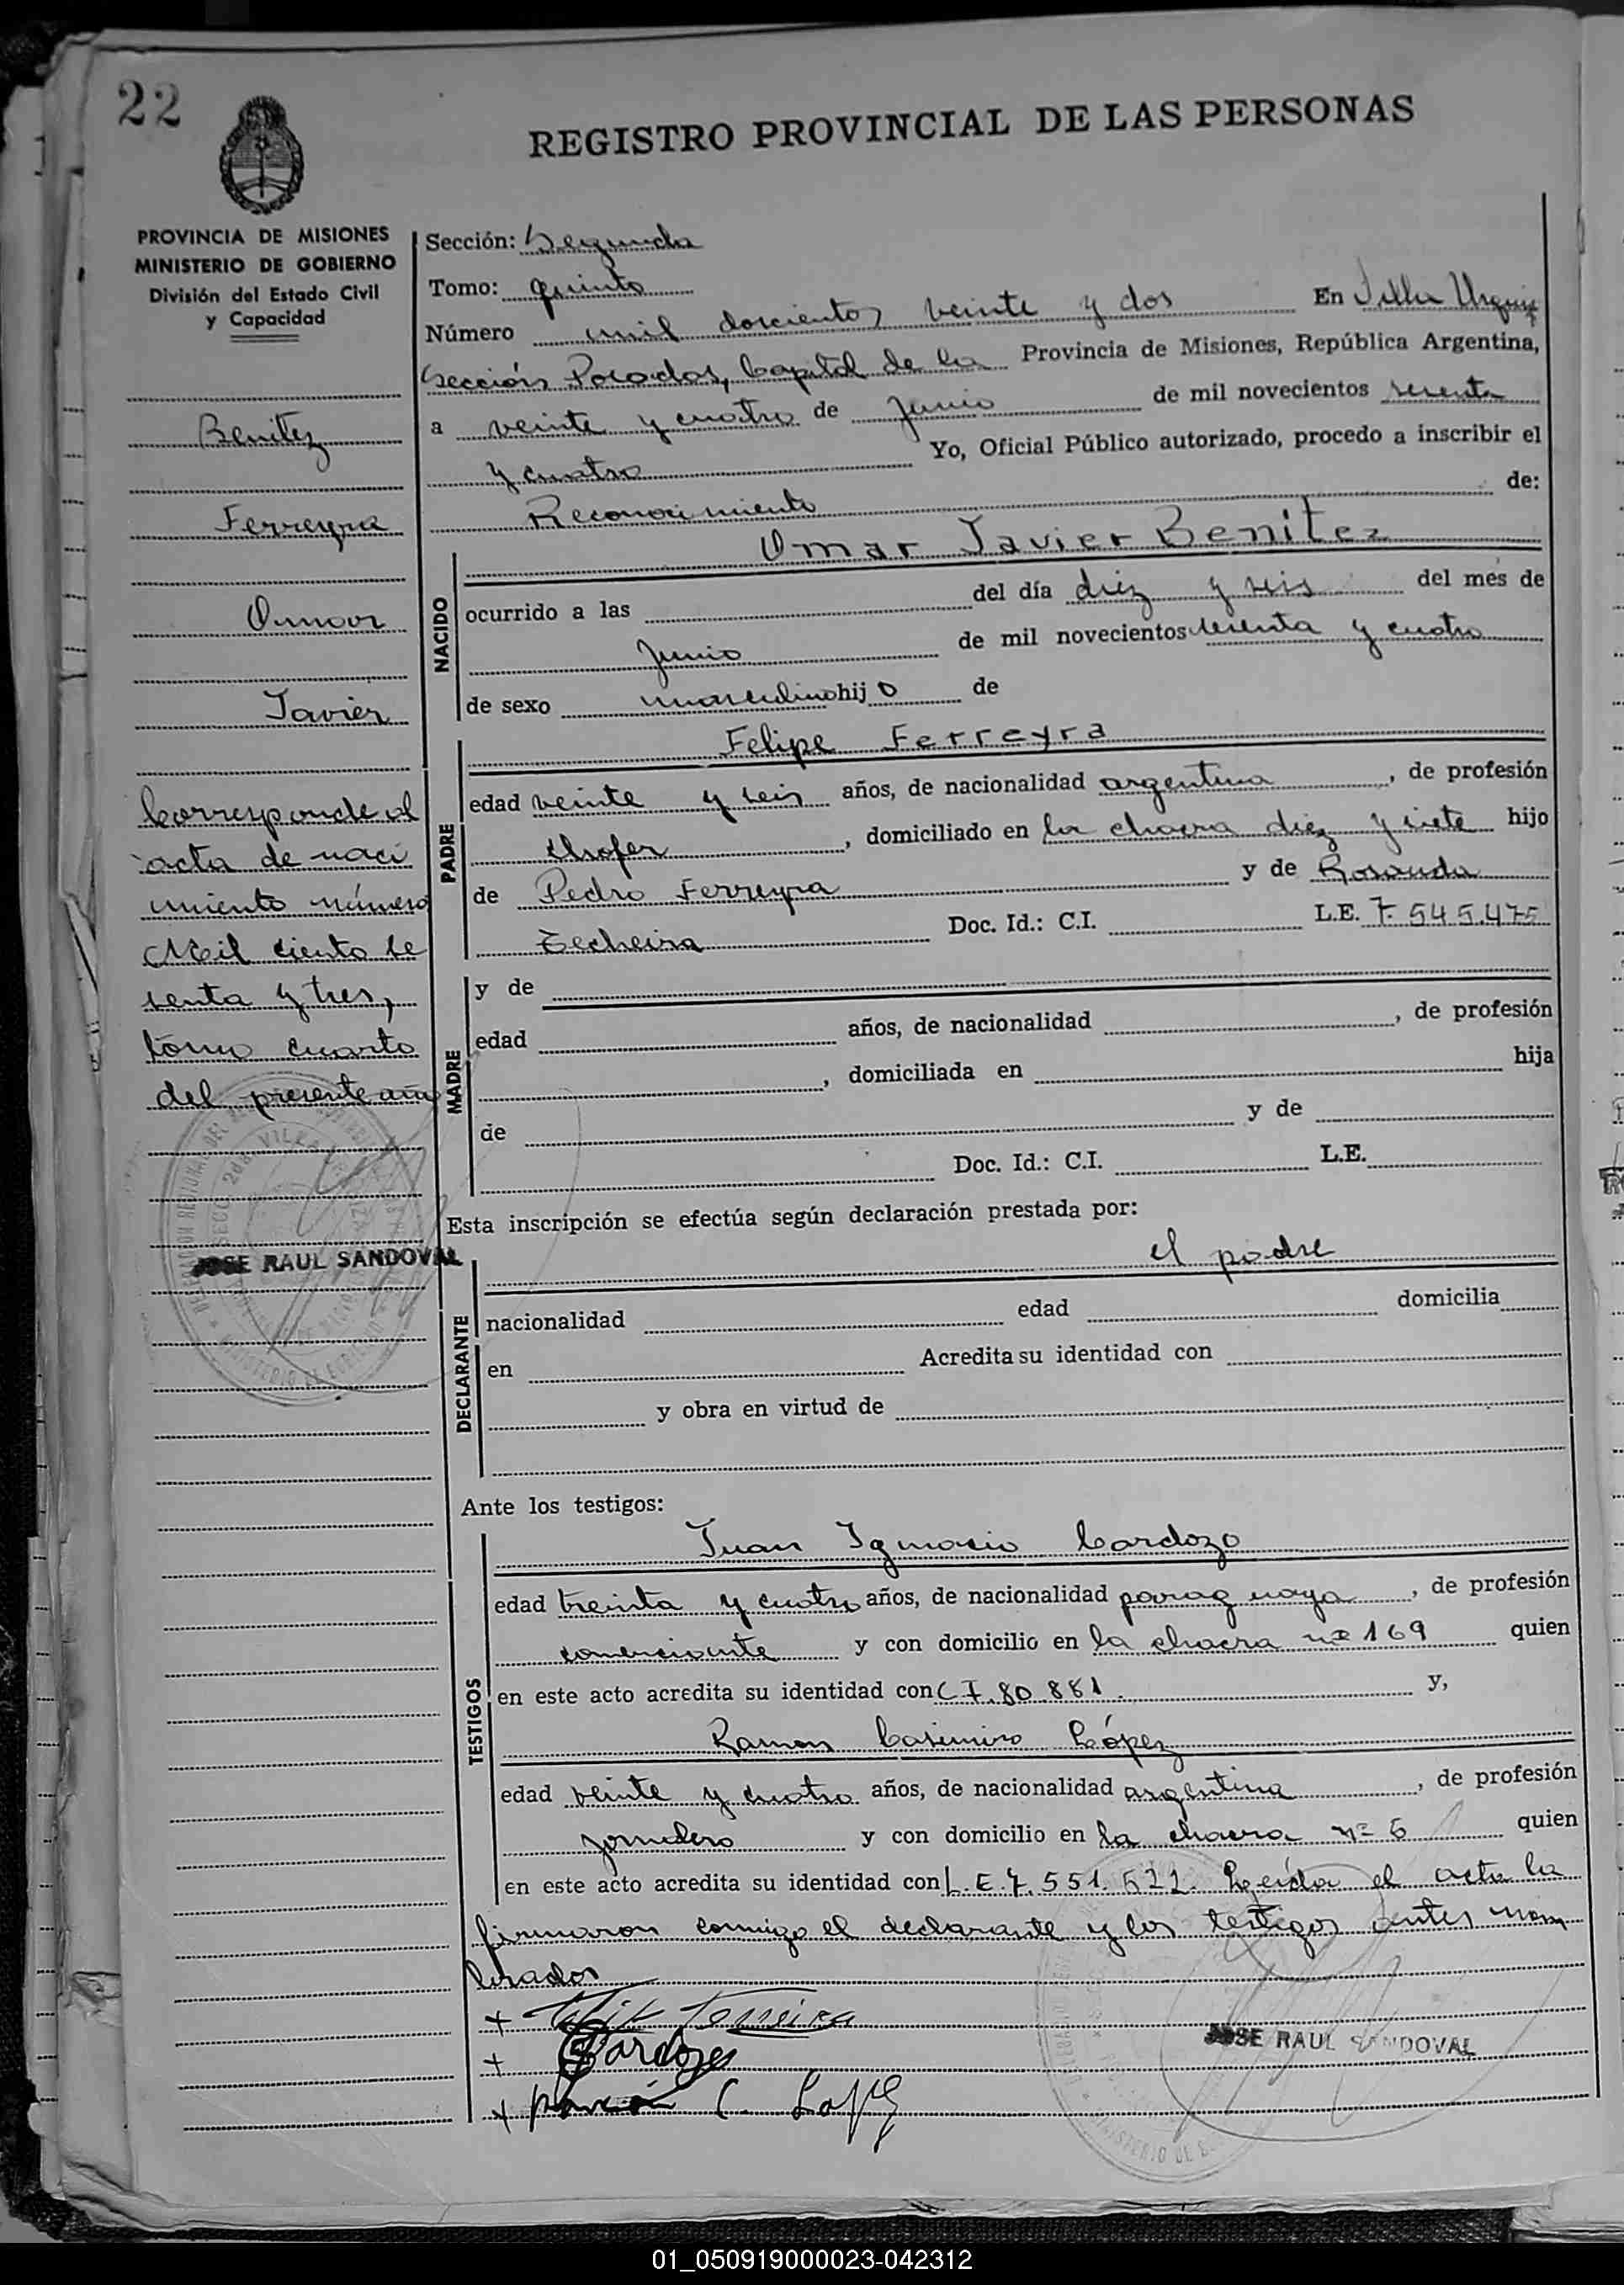 22
REGISTRO PROVINCIAL DE LAS PERSONAS
PROVINCIA DE MISIONES
MINISTERIO DE GOBIERNO
División del Estado Civil
y Capacidad
Benitez
Ferreyra
Omar
Javier
Corresponde al
acta de naci
miento número
Mil ciento se
senta y tres,
tomo cuarto
del presente año
JOSE RAUL SANDOVAL
Sección: Segunda
Tomo: quinto
Número mil doscientos veinte y dos En Villa Urquiza
Sección Posadas, Capital de la Provincia de Misiones, República Argentina,
a veinte y cuatro de Junio de mil novecientos sesenta
y cuatro Yo, Oficial Público autorizado, procedo a inscribir el
Reconocimiento de:
NACIDO
Omar Javier Benitez
ocurrido a las del día diez y seis del mes de
Junio de mil novecientos sesenta y cuatro
de sexo masculino hijo de
PADRE
Felipe Ferreyra
edad veinte y seis años, de nacionalidad argentina, de profesión
chofer, domiciliado en la chacra diez y siete hijo
de Pedro Ferreyra y de Rosanda
Techeira Doc. Id.: C.I. L.E. 7.545.475
MADRE
y de
edad años, de nacionalidad , de profesión
, domiciliada en hija
de y de
Doc. Id.: C.I. L.E.
Esta inscripción se efectúa según declaración prestada por:
DECLARANTE
el padre
nacionalidad edad domicilia
en Acredita su identidad con
y obra en virtud de
Ante los testigos:
TESTIGOS
Juan Ignacio Cardozo
edad treinta y cuatro años, de nacionalidad paraguaya, de profesión
comerciante y con domicilio en la chacra nº 169 quien
en este acto acredita su identidad con C I. 80.881. y,
Ramon Casimiro López
edad veinte y cuatro años, de nacionalidad argentina, de profesión
jornalero y con domicilio en la chacra nº 6 quien
en este acto acredita su identidad con L.E. 7.551.522. Leída el acta la
firmaron conmigo el declarante y los testigos antes nom
brados
+ Ferreira
+ Cardozo
+ Ramón C. Lopez
JOSE RAUL SANDOVAL
01_050919000023-042312